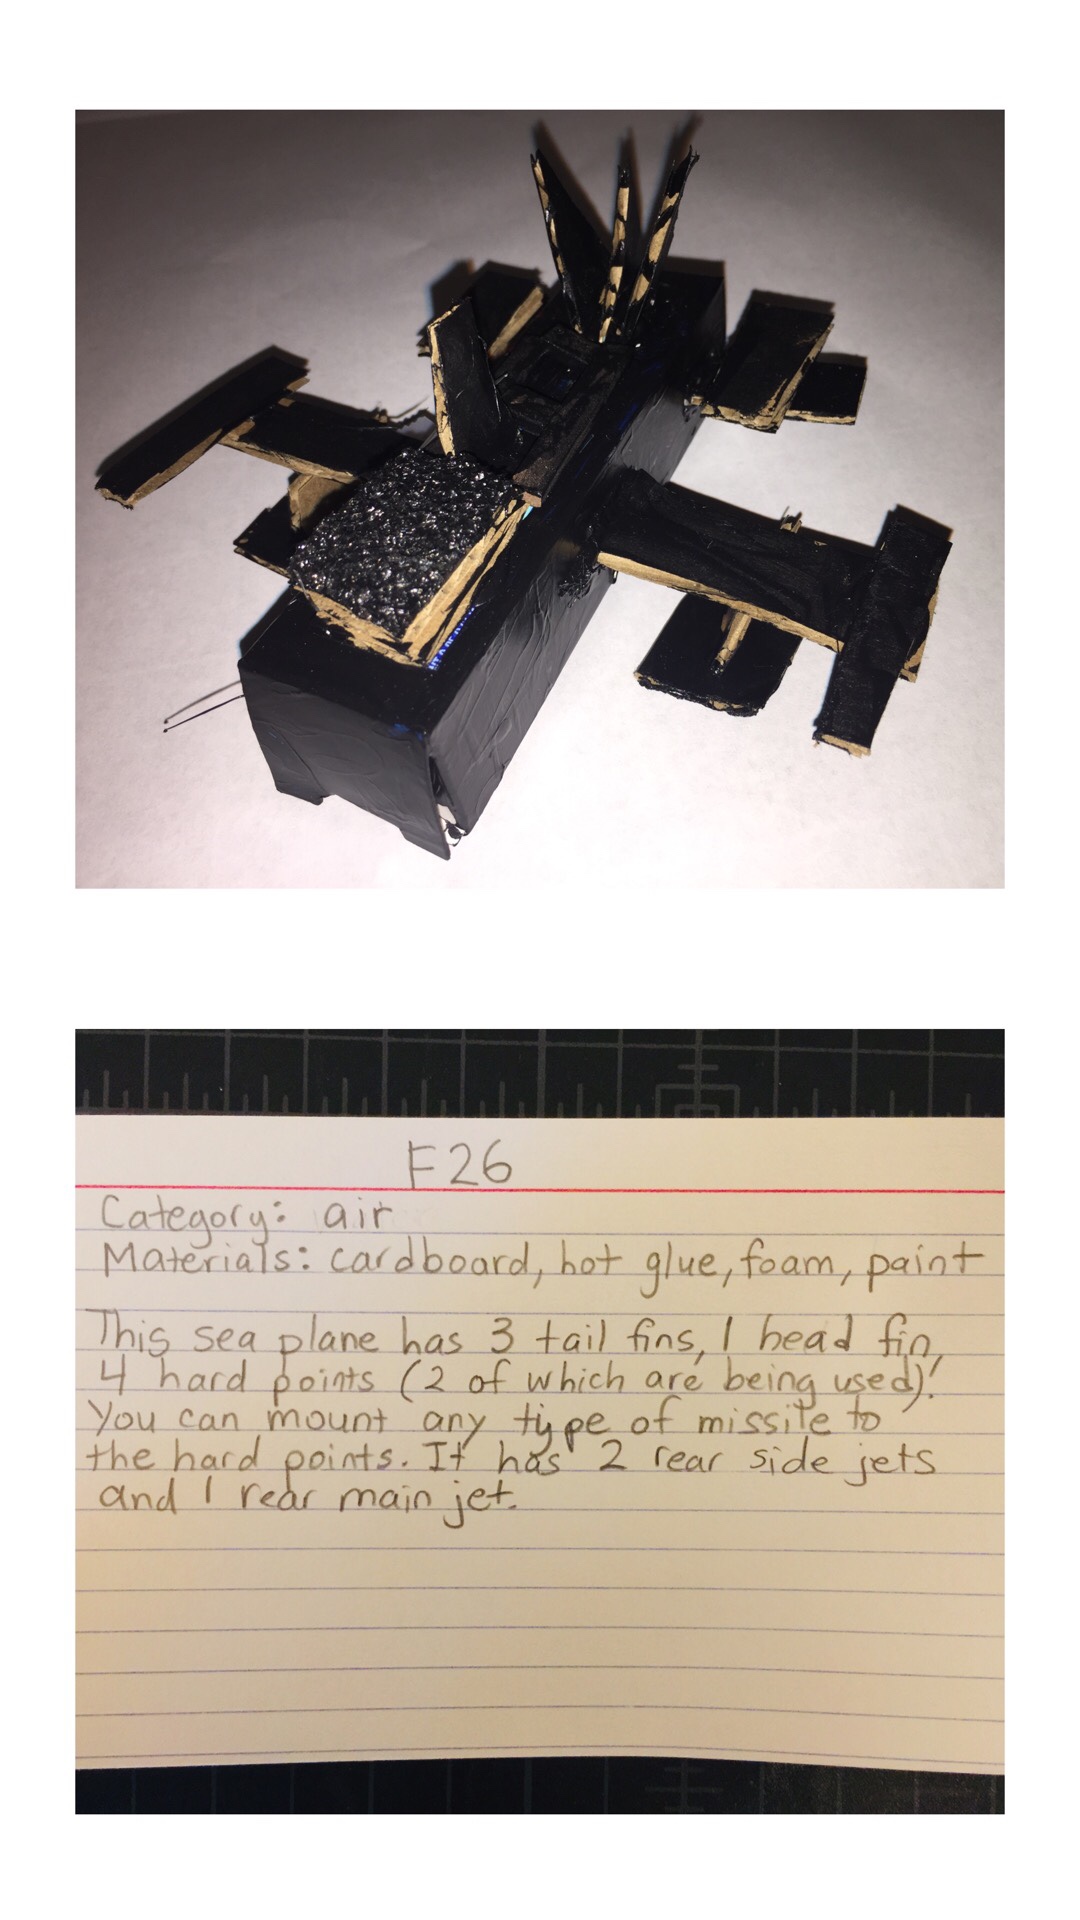 F26
Category: air
Materials: cardboard, hot glue, foam, paint
This sea plane has 3 tail fins, 1 head fin,
4 hard points (2 of which are being used)!
You can mount any type of missile to
the hard points. It has 2 rear side jets
and 1 rear main jet.